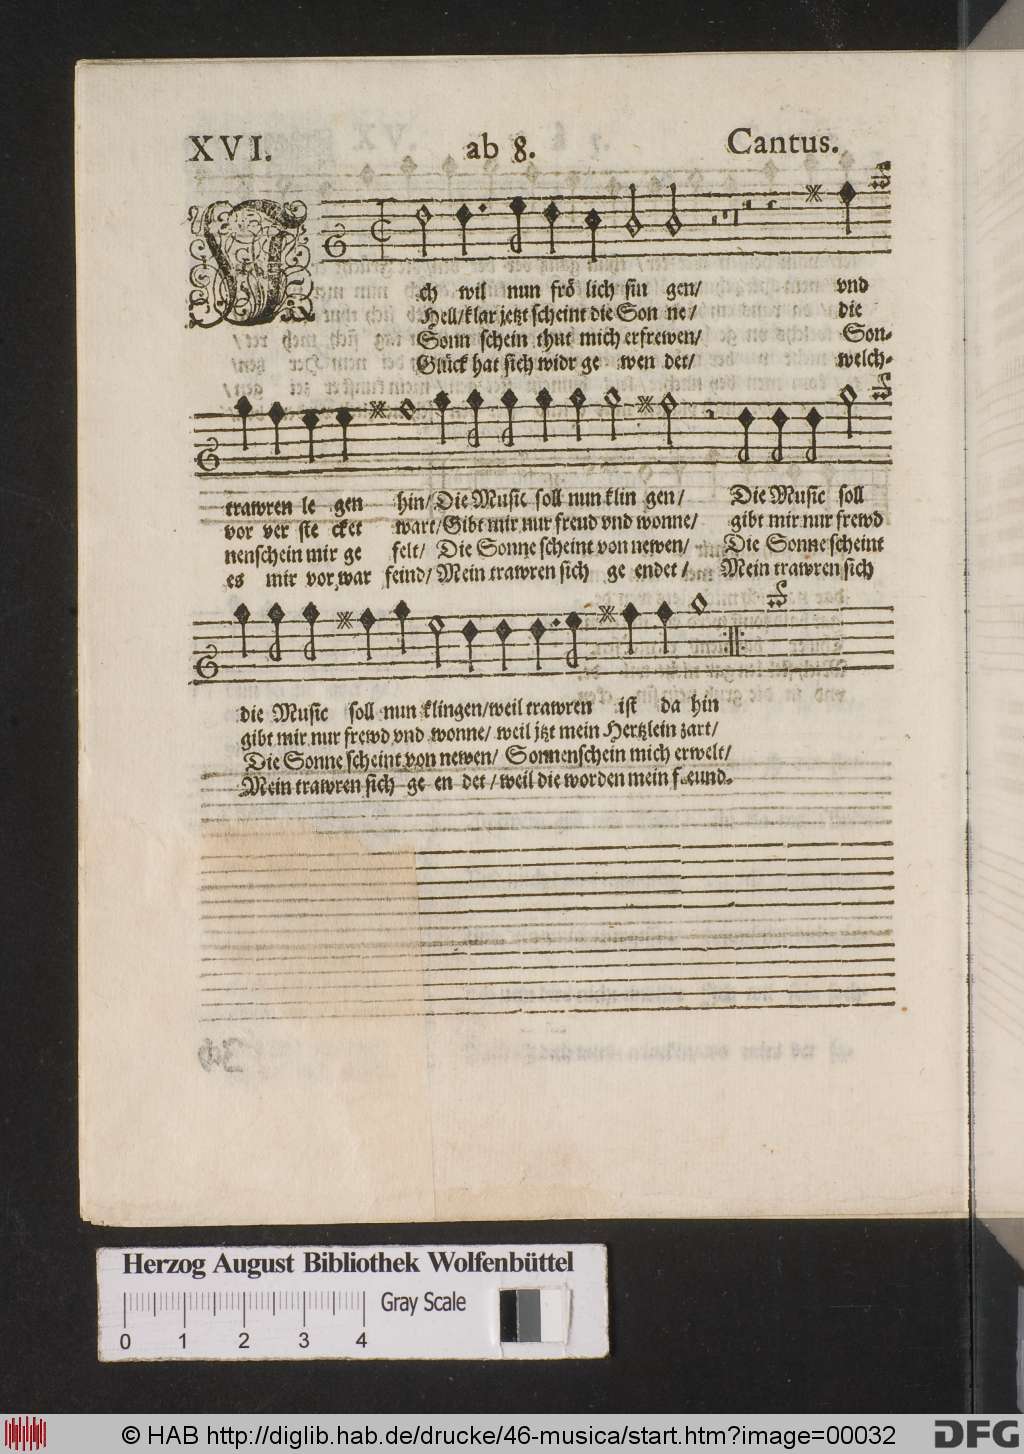 XVI. ab 8. Cantus.
Ich wil nun frö lich sin gen/ vnd
Hell/klar jetzt scheint die Son ne/ die
Sonn schein thut mich erfrewen/ Son-
Glück hat sich widr ge wen det/ welch-
trawren le gen hin/ Die Music soll nun klin gen/ Die Music soll
vor ver ste cket wart/ Gibt mir nur freud vnd wonne/ gibt mir nur frewd
nenschein mir ge felt/ Die Sonne scheint von newen/ Die Sonne scheint
es mir vor war feind/ Mein trawren sich ge endet/ Mein trawren sich
die Music soll nun klingen/ weil trawren ist da hin
gibt mir nur frewd vnd wonne/ weil jtzt mein Hertzlein zart/
Die Sonne scheint von newen/ Sonnenschein mich erwelt/
Mein trawren sich ge en det/ weil die worden mein freund.
Herzog August Bibliothek Wolfenbüttel
Gray Scale
0 1 2 3 4
© HAB http://diglib.hab.de/drucke/46-musica/start.htm?image=00032
DFG